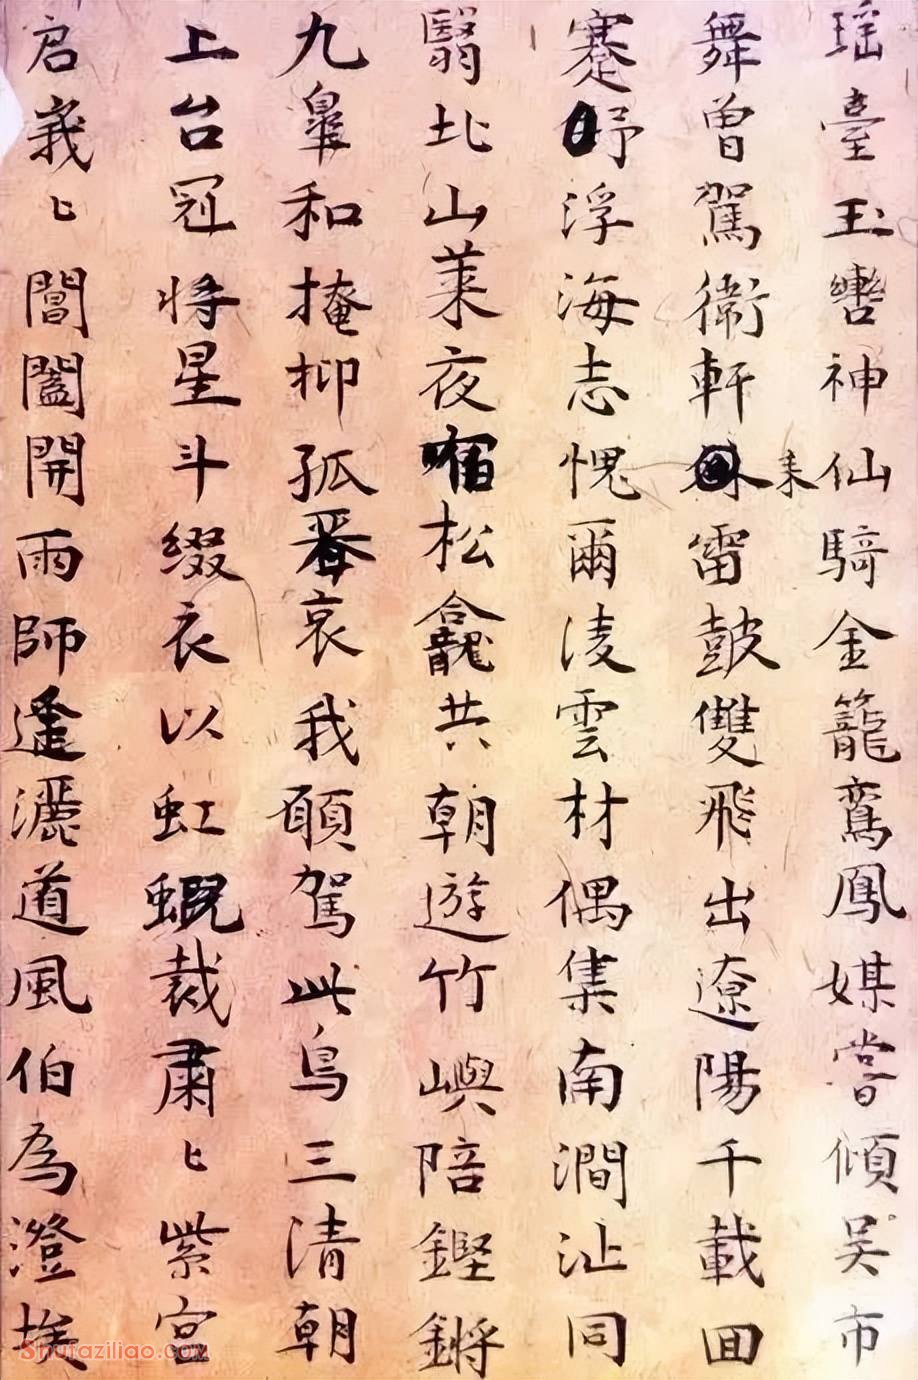 瑶臺玉轡神仙騎金籠鸞鳳媒嘗傾吳市
舞曾駕衛軒来雷鼓雙飛出遼陽千載回
蹇予浮海志愧爾淩雲材偶集南澗沚同
翳北山萊夜宿松龕共朝遊竹嶼陪鏗鏘
九皋和掩抑孤哀我願駕此鳥三清朝
上台冠将星斗綴衣以虹蜺裁肅〻紫宫
启峩〻閶闔開雨師遥灑道風伯為澄埃
Shufaziliao.com